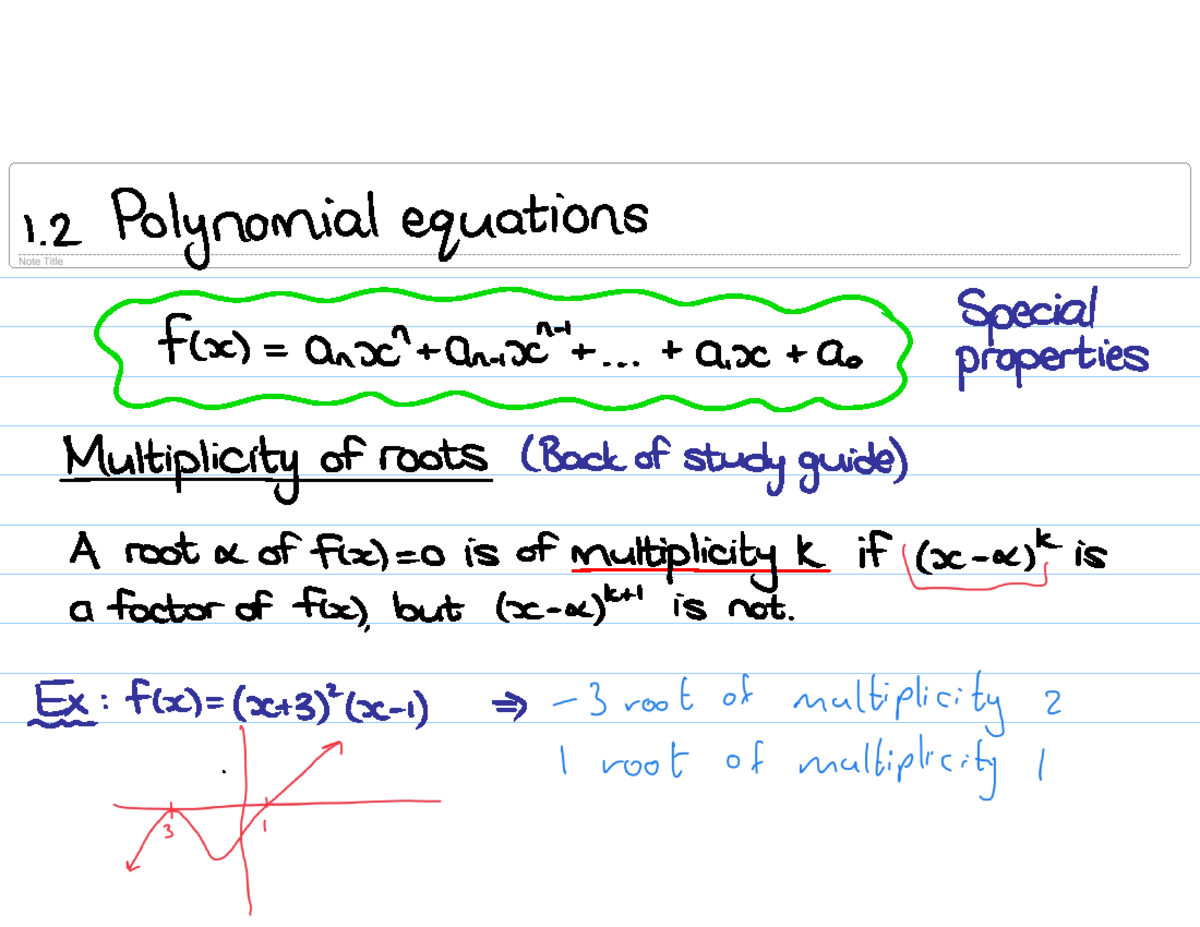 1.2 Polynomial equations
Note Title
f(x) = aₙxⁿ + aₙ₋₁xⁿ⁻¹ + ... + a₁x + a₀
Special
properties
Multiplicity of roots (Back of study guide)
A root α of f(x)=0 is of multiplicity k if (x-α)ᵏ is
a factor of f(x), but (x-α)ᵏ⁺¹ is not.
Ex: f(x)=(x+3)²(x-1) ⇒ -3 root of multiplicity 2
1 root of multiplicity 1
3 1